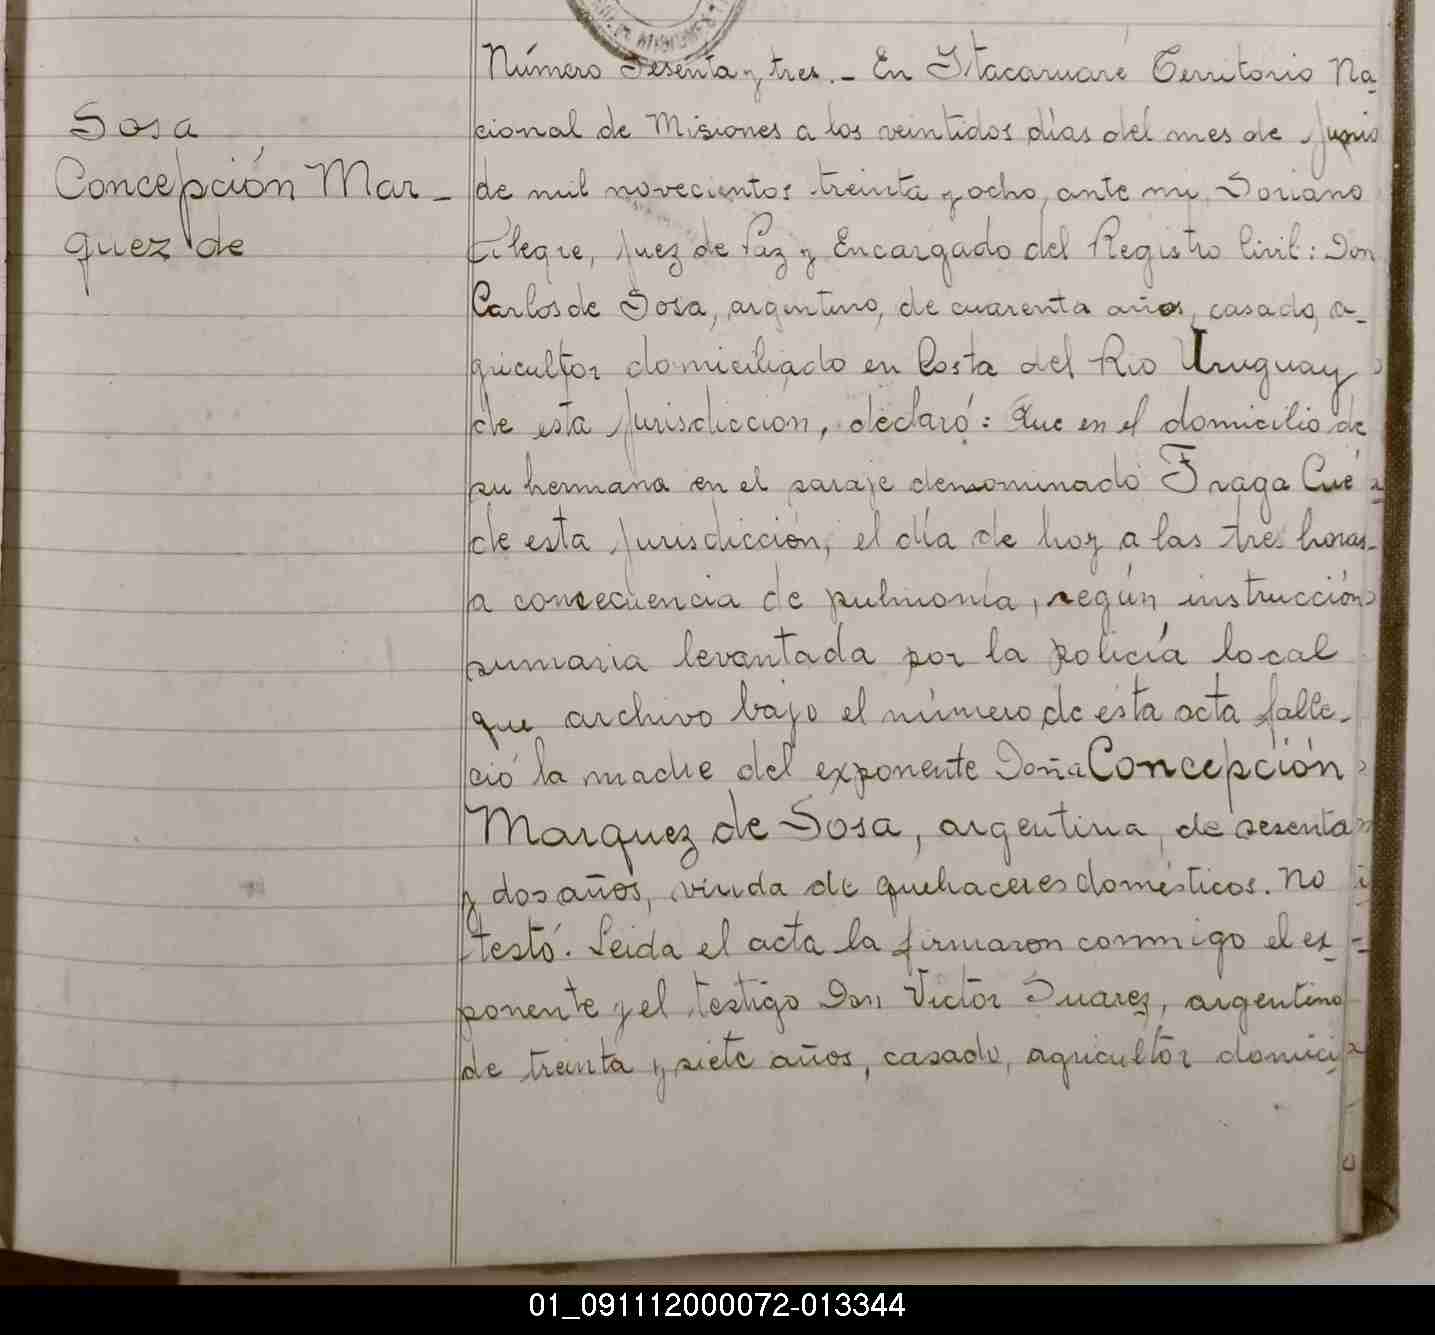 Sosa
Concepción Mar-
quez de
Número Sesenta y tres.- En Itacaruaré Territorio Na-
cional de Misiones a los veintidos días del mes de Junio
de mil novecientos treinta y ocho, ante mi, Soriano
Alegre, Juez de Paz y Encargado del Registro Civil: Don
Carlos de Sosa, argentino, de cuarenta años, casado, a-
gricultor domiciliado en Costa del Rio Uruguay
de esta Jurisdiccion, declaró: Que en el domicilio de
su hermana en el paraje denominado Fraga Cué
de esta Jurisdicción, el día de hoy a las tres horas-
a consecuencia de pulmonía, según instrucción
sumaria levantada por la policía local
que archivo bajo el número de esta acta falle-
ció la madre del exponente Doña Concepción
Marquez de Sosa, argentina, de sesenta
y dos años, viuda de quehaceres domésticos. No
testó. Leida el acta la firmaron conmigo el ex-
ponente y el testigo Don Victor Suarez, argentino
de treinta y siete años, casado, agricultor domici-
01_091112000072-013344